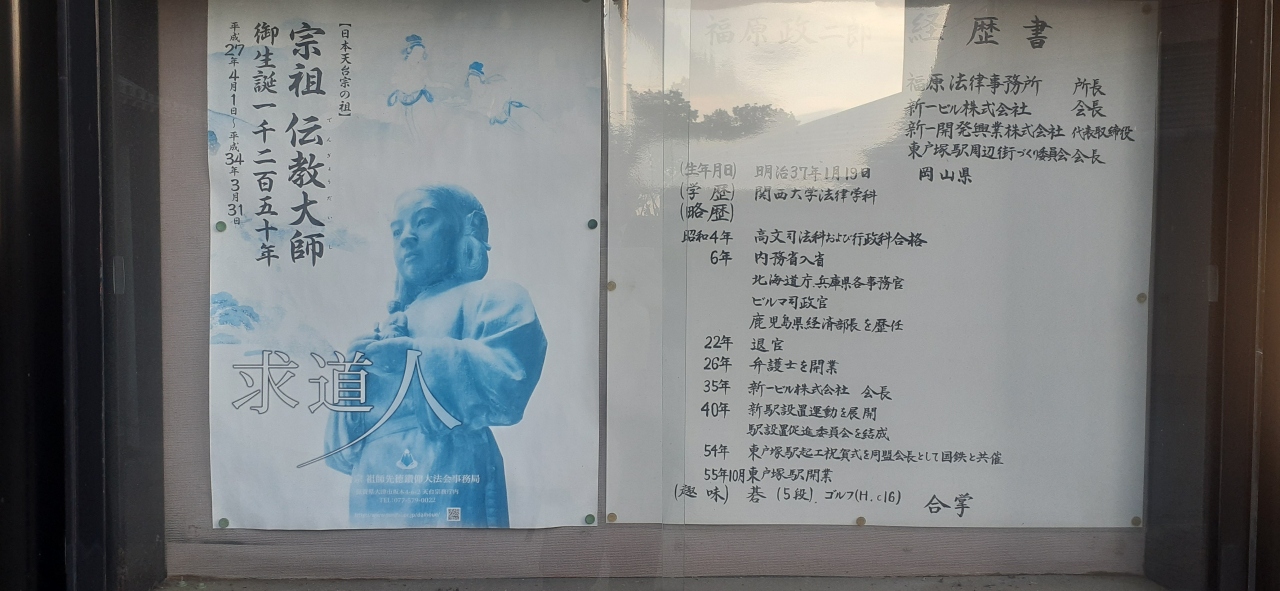 【日本天台宗の祖】
宗祖 伝教大師
でんぎょうだいし
御生誕一千二百五十年
平成27年4月1日～平成34年3月31日
求道人
祖師先徳鑽仰大法会事務局
福原政二郎 経歴書
福原法律事務所 所長
新一ビル株式会社 会長
新一開発興業株式会社 代表取締役
東戸塚駅周辺街づくり委員会 会長
(生年月日) 明治37年1月19日 岡山県
(学歴) 関西大学法律学科
(略歴)
昭和4年 高文司法科および行政科合格
6年 内務省入省
北海道庁、兵庫県各事務官
ビルマ司政官
鹿児島県経済部長を歴任
22年 退官
26年 弁護士を開業
35年 新一ビル株式会社 会長
40年 新駅設置運動を展開
駅設置促進委員会を結成
54年 東戸塚駅起工祝賀式を同盟会長として国鉄と共催
55年10月 東戸塚駅開業
(趣味) 碁(5段). ゴルフ(H.c16)
合掌